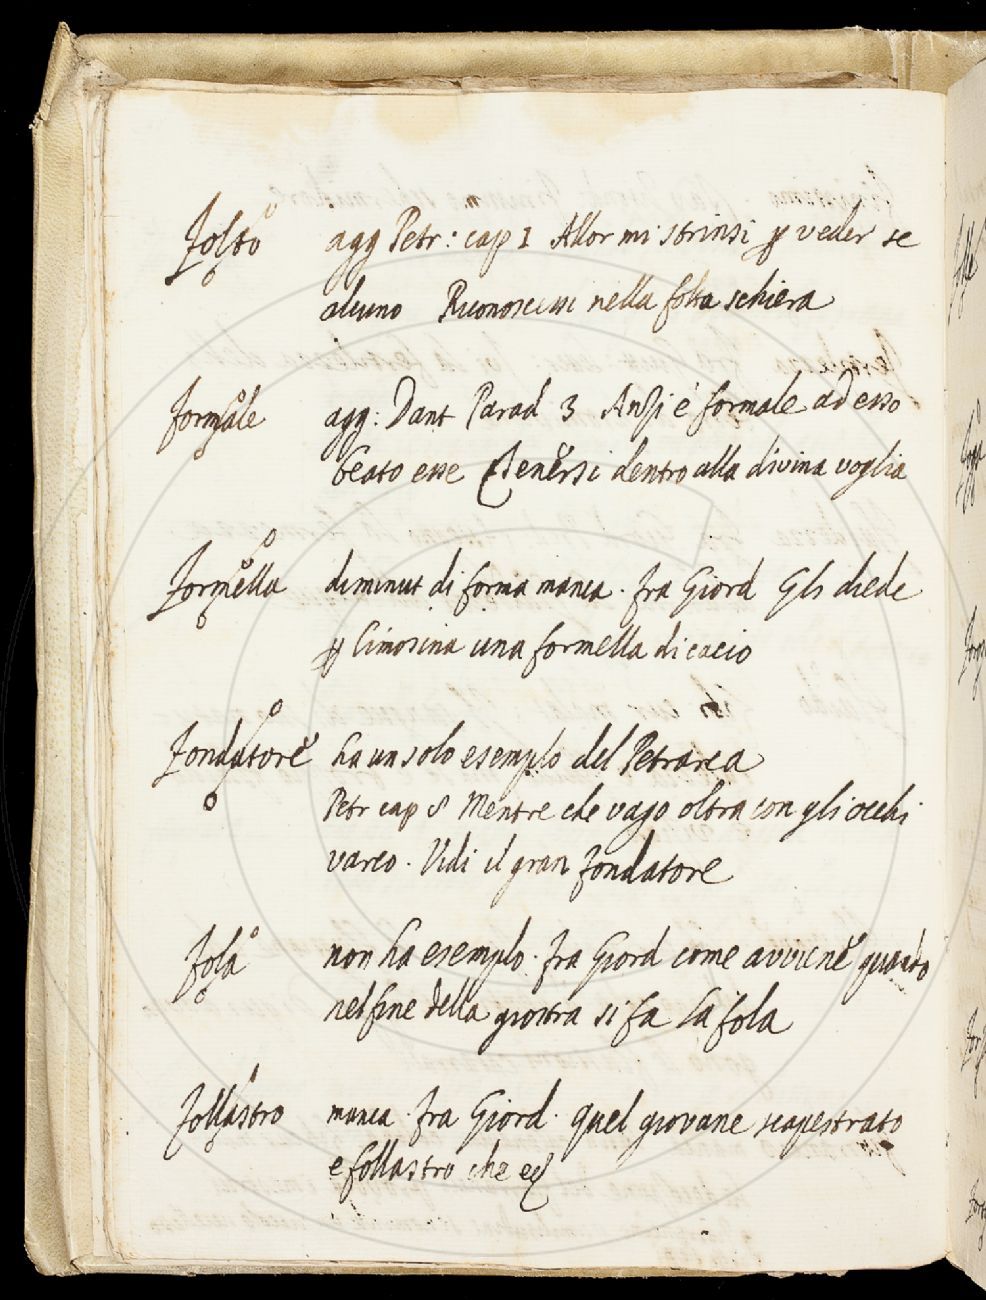 Folto agg Petr: cap 1 Allor mi strinsi p veder se
alcuno Riconoscessi nella folta schiera
formale agg: Dant Parad 3 Anzi è formale ad esso
beato esse Tenersi dentro alla divina voglia
Formella diminut di forma manca. fra Giord Gli diede
p limosina una formella di cacio
Fondatore ha un solo esemplo del Petrarca
Petr cap 8 Mentre che vago oltra con gli occhi
varco. Vidi il gran fondatore
fola non ha esemplo. fra Giord come avviene quando
nel fine della giostra si fa la fola
follastro manca. fra Giord. quel giovane scapestrato
e follastro che